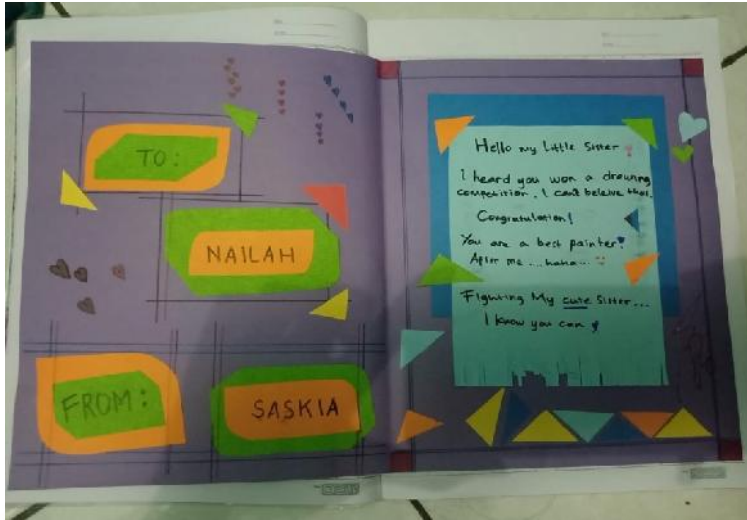 TO:
NAILAH
FROM:
SASKIA
Hello my Little Sister
I heard you won a drawing
competition. I can't beleive that.
Congratulation!
You are a best painter!
After me ... haha ...
Fighting My cute Sister ...
I know you can